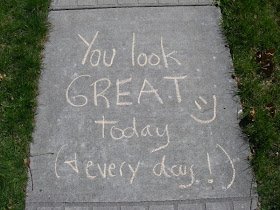 You look
GREAT :)
today
(& every day!)